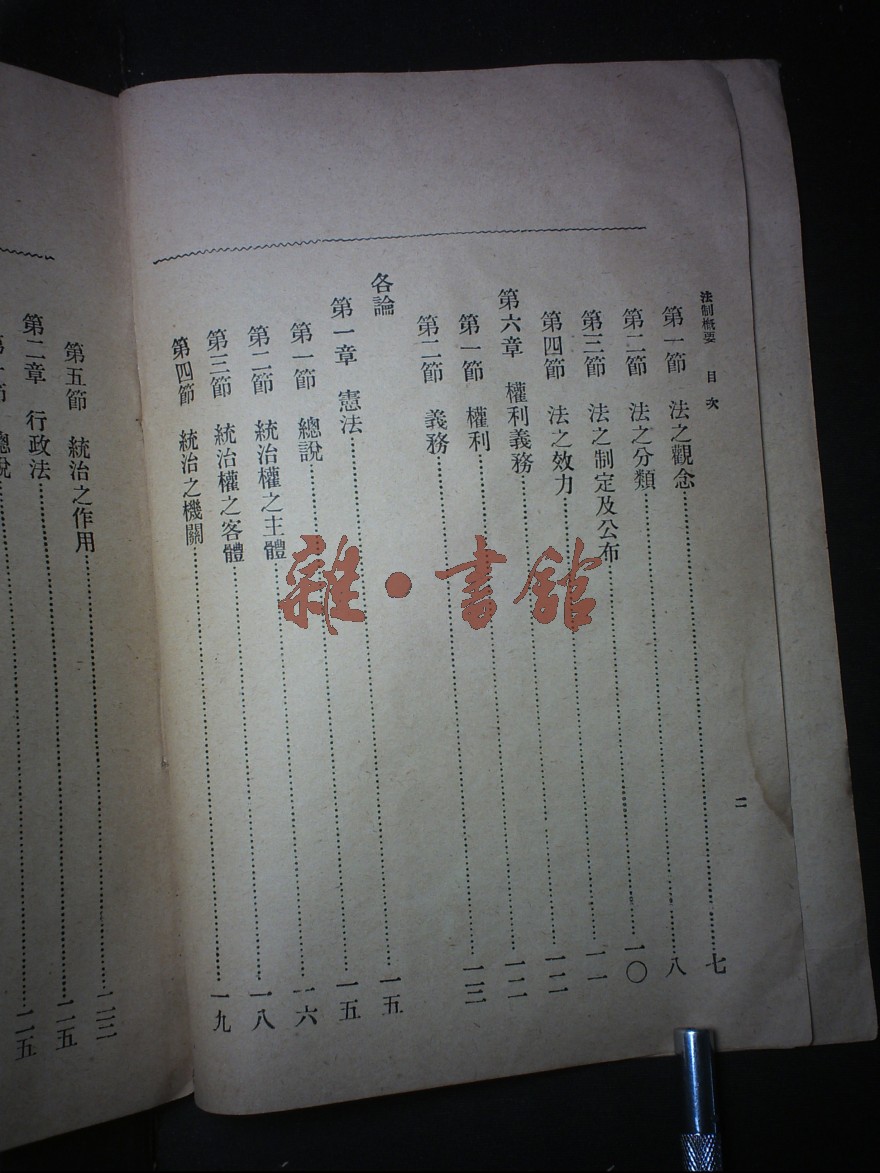 法制概要 目次 二
第一節 法之觀念……七
第二節 法之分類……八
第三節 法之制定及公布……一〇
第四節 法之效力……一一
第六章 權利義務……一二
第一節 權利……一二
第二節 義務……一三
各論
第一章 憲法……一五
第一節 總說……一五
第二節 統治權之主體……一六
第三節 統治權之客體……一八
第四節 統治之機關……一九
第五節 統治之作用……二三
第二章 行政法……二五
第一節 總說……二五
雜・書館